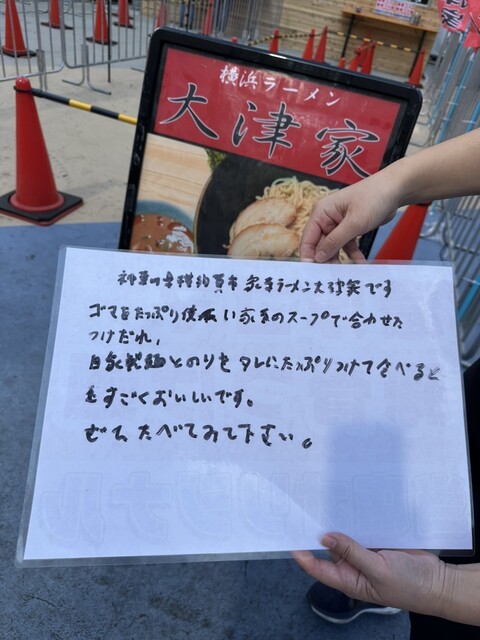 横浜ラーメン
大津家
神奈川県横須賀市 家系ラーメン大津家です
ゴマをたっぷり使い家系のスープで合わせた
つけだれ、
自家製麺とのりをタレにたっぷりつけて食べると
とてもすごくおいしいです。
ぜひ、たべてみて下さい。